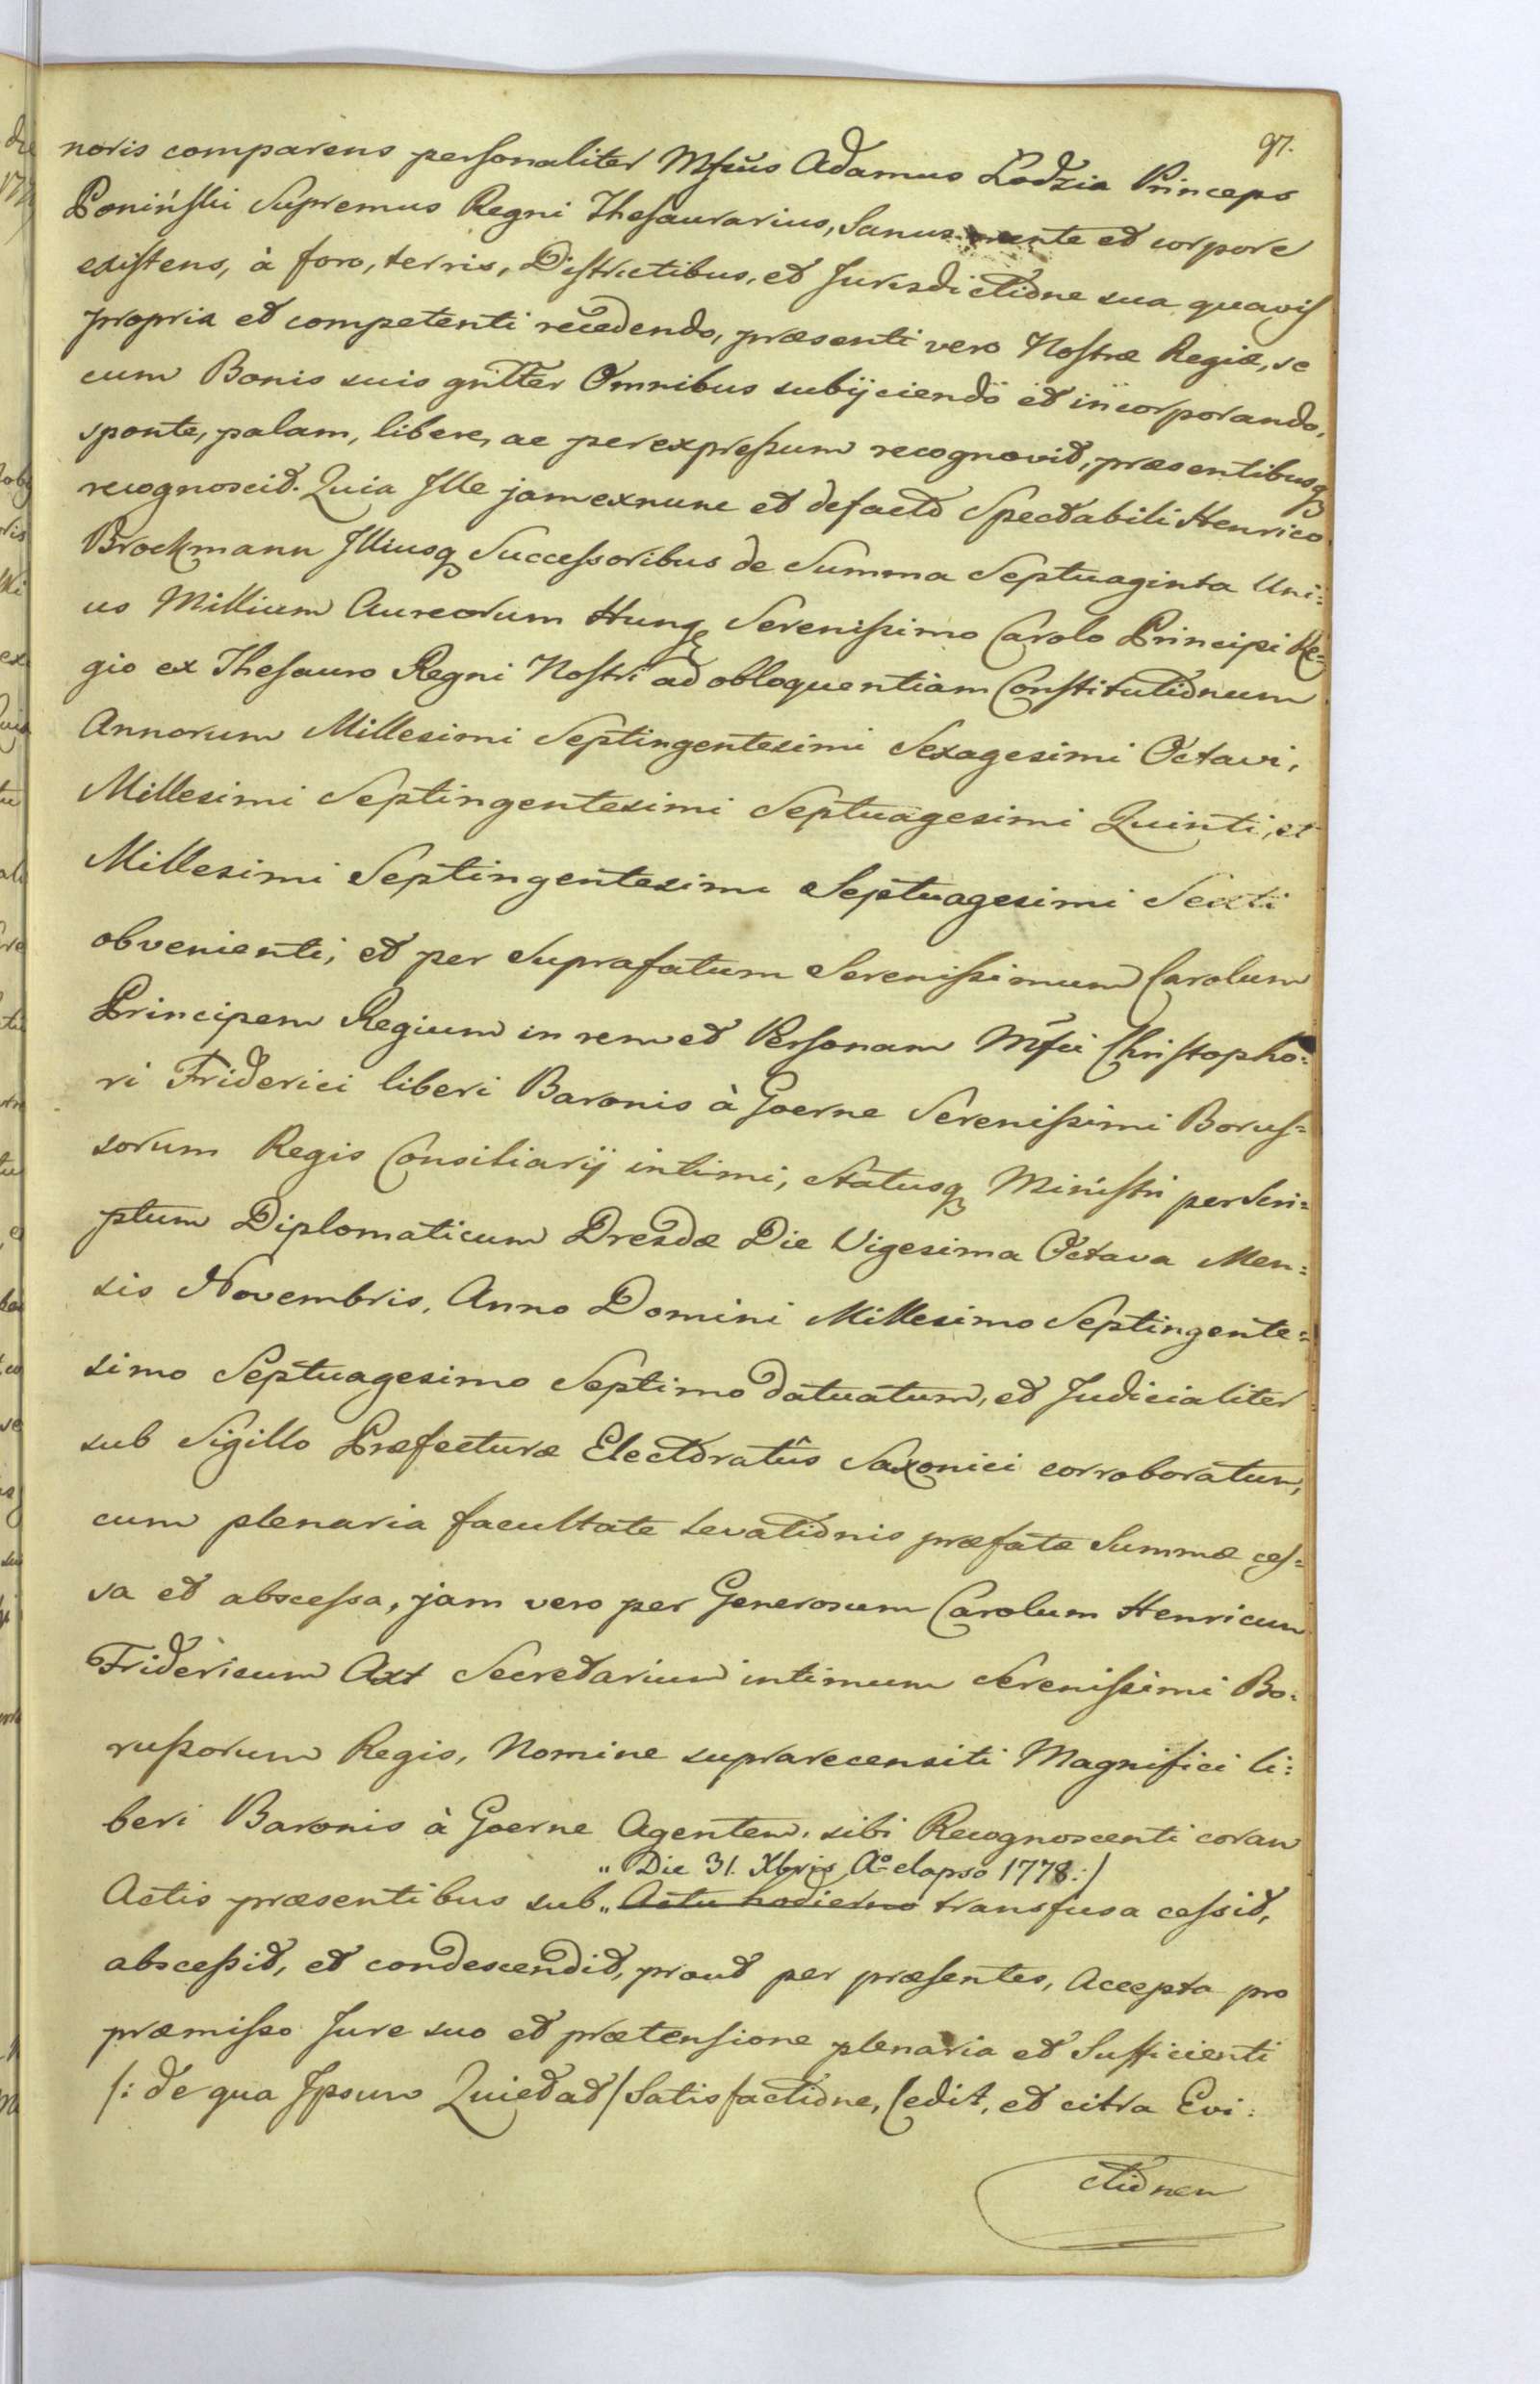 97.
noris comparens personaliter Mfcus Adamus Lodzia Princeps
Poniński Supremus Regni Thesaurarius, Sanus mente et corpore
existens, à foro, terris, Districtibus, et Jurisdictione sua quavis
propria et competenti recedendo, præsenti vero Nostræ Regiæ, se
cum Bonis suis gnlter Omnibus subijciendo et incorporando,
sponte, palam, libere, ac per expressum recognovit, præsentibusq
recognoscit. Quia Ille jam exnunc et defacto Spectabili Henrico
Brockmann Illiusq Successoribus de Summa Septuaginta Uni:
us Millium Aureorum Hung Serenissimo Carolo Principi Re:
gio ex Thesauro Regni Nostri ad obloquentiam Constitutionum
Annorum Millesimi Septingentesimi Sexagesimi Octavi,
Millesimi Septingentesimi Septuagesimi Quinti, et
Millesimi Septingentesimi Septuagesimi Sexti
obvenienti, et per Suprafatum Serenissimum Carolum
Principem Regium in rem et Personam Mfci Christopho:
ri Friderici liberi Baronis à Goerne Serenissimi Borus=
sorum Regis Consiliarij intimi, Statusq Ministri per Scri=
ptum Diplomaticum Dresdæ Die Vigesima Octava Men=
sis Novembris, Anno Domini Millesimo Septingente=
simo Septuagesimo Septimo datuatum, et Judicialiter
sub Sigillo Præfecturæ Electoratûs Saxonici corroboratum,
cum plenaria facultate levationis præfatæ Summæ ces=
sa et abscessa, jam vero per Generosum Carolum Henricum
Fridericum Axt Secretarium intimum Serenissimi Bo:
russorum Regis, Nomine suprarecensiti Magnifici li:
beri Baronis à Goerne Agentem, sibi Recognoscenti coram
„ Die 31. Xbris Aº elapso 1778:/
Actis præsentibus sub „ Actu hodierno transfusa cessit,
abscessit, et condescendit, prout per præsentes, Accepta pro
præmisso Jure suo et prætensione plenaria et Sufficienti
/: de qua Ipsum Quietat/ Satisfactione, Cedit, et citra Evi:
ctionem